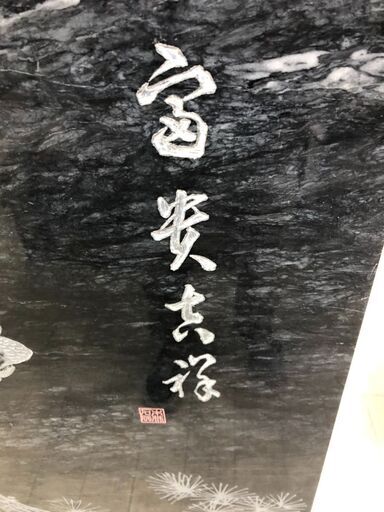 富贵吉祥